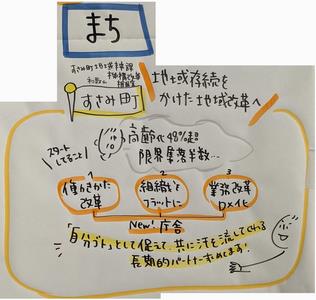 まち
すさみ町
地域存続を
かけた地域改革へ
スタート
してること
高齢化48%超
限界集落半数…
1
働きかた
改革
2
組織を
フラットに
3
業務改革
DX化
New! 庁舎
「自分ゴト」として捉えて、共に汗を流してくれる
長期的パートナー求めてます!